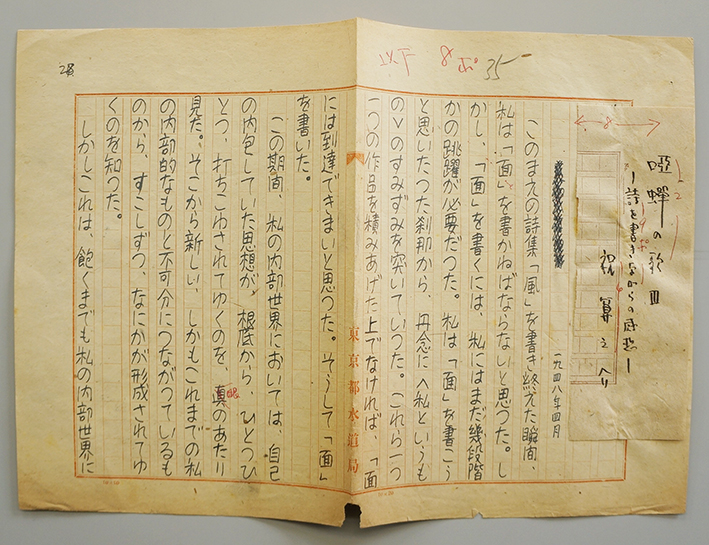 以下 8ポ 35
啞蟬の歌 Ⅲ
ー詩を書きながらの感想ー
祝 算之介
一九四八年四月
このまえの詩集「風」を書き終えた瞬間、
私は「面」を書かねばならないと思つた。し
かし、「面」を書くには、私にはまだ幾段階
かの跳躍が必要だつた。私は「面」を書こう
と思いたつた刹那から、丹念に〈私というも
の〉のすみずみを突いていつた。これら一つ
一つの作品を積みあげた上でなければ、「面
東京都水道局
には到達できまいと思つた。そうして「面」
を書いた。
この期間、私の内部世界においては、自己
の内包していた思想が、根底から ひとつひ
とつ、打ちこわされてゆくのを、眞のあたり
見た。そこから新しい、しかもこれまでの私
の内部的なものと不可分につながつているも
のから、すこしずつ、なにかが形成されてゆ
くのを知つた。
しかしこれは、飽くまでも私の内部世界に